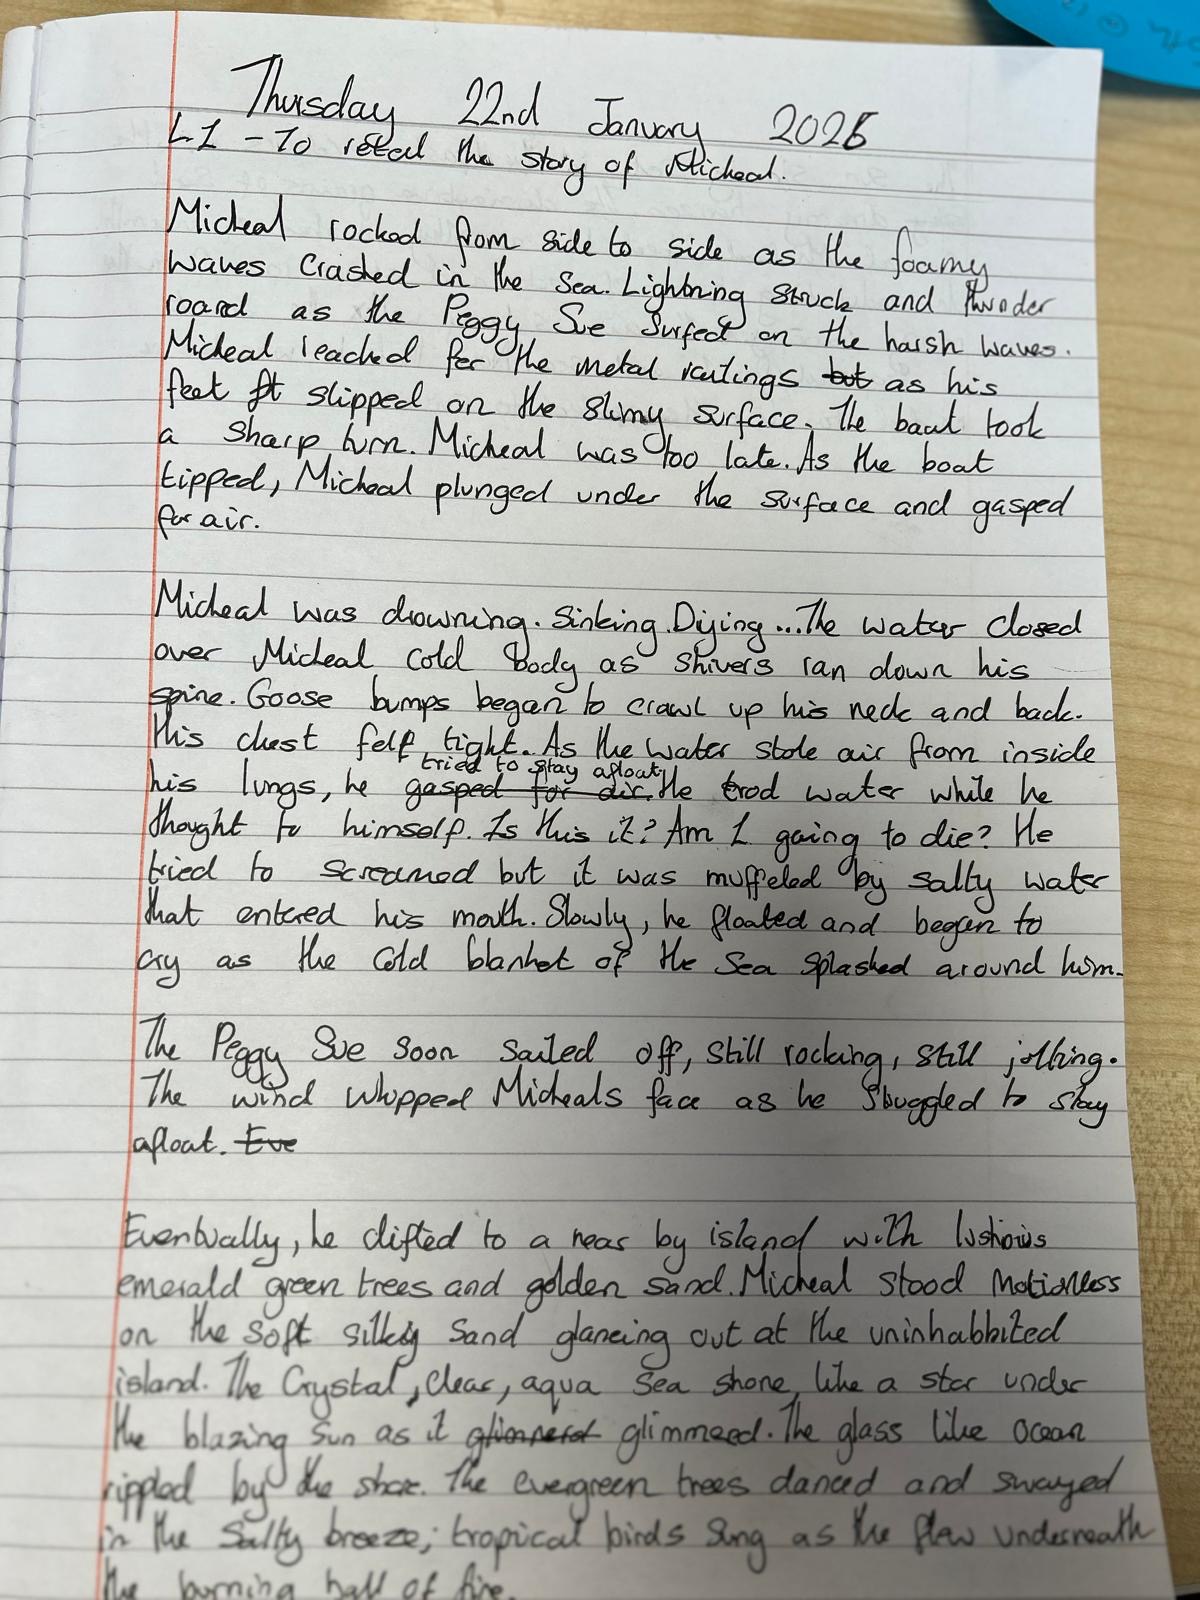 Thursday 22nd January 2026
LI - To retell the story of Micheal.
Micheal rocked from side to side as the foamy
waves crashed in the sea. Lightning struck and thunder
roard as the Peggy Sue surfed on the harsh waves.
Micheal reached for the metal railings but as his
feet ft slipped on the slimy surface. The baut took
a sharp turn. Micheal was too late. As the boat
tipped, Micheal plunged under the surface and gasped
for air.
Micheal was drowning. Sinking. Dijing ... The water closed
over Micheal cold body as shivers ran down his
spine. Goose bumps began to crawl up his neck and back.
His chest felt tight. As the water stole air from inside
tried to stay afloat.
his lungs, he gasped for air. He trod water while he
thought to himself. Is this it? Am I going to die? He
tried to screamed but it was muffeled by salty water
that entered his mouth. Slowly, he floated and began to
cry as the cold blanket of the sea splashed around him.
The Peggy Sue soon sailed off, still rocking, still jolting.
The wind whipped Micheals face as he struggled to stay
afloat. Eve
Eventually, he difted to a near by island with lushious
emerald green trees and golden sand. Micheal stood motionless
on the soft silky sand glancing out at the uninhabbited
island. The Crystal, clear, aqua sea shone, like a star under
the blazing sun as it glimmerd glimmered. The glass like ocean
rippled by the shore. The evergreen trees danced and swayed
in the salty breeze; tropical birds sung as the flew underneath
the burning ball of fire.